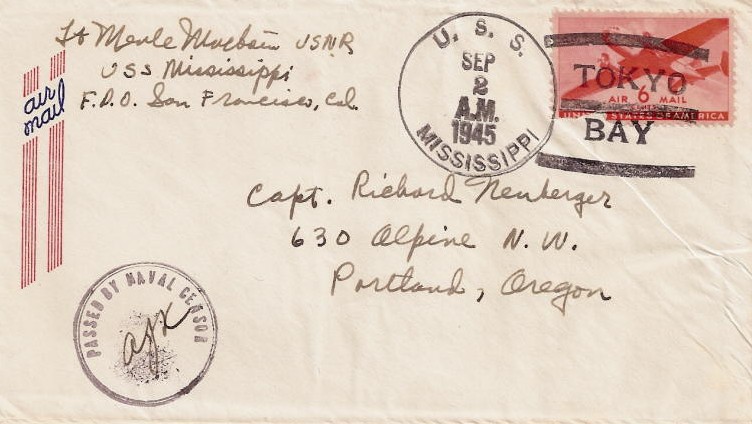 Lt Merle Macbain USNR
USS Mississippi
F.P.O. San Francisco, Cal.
air
mail
U. S. S.
SEP
2
A.M.
1945
MISSISSIPPI
TOKYO
BAY
AIR 6 MAIL
CENTS
UNITED STATES OF AMERICA
Capt. Richard Neuberger
630 Alpine N. W.
Portland, Oregon
PASSED BY NAVAL CENSOR